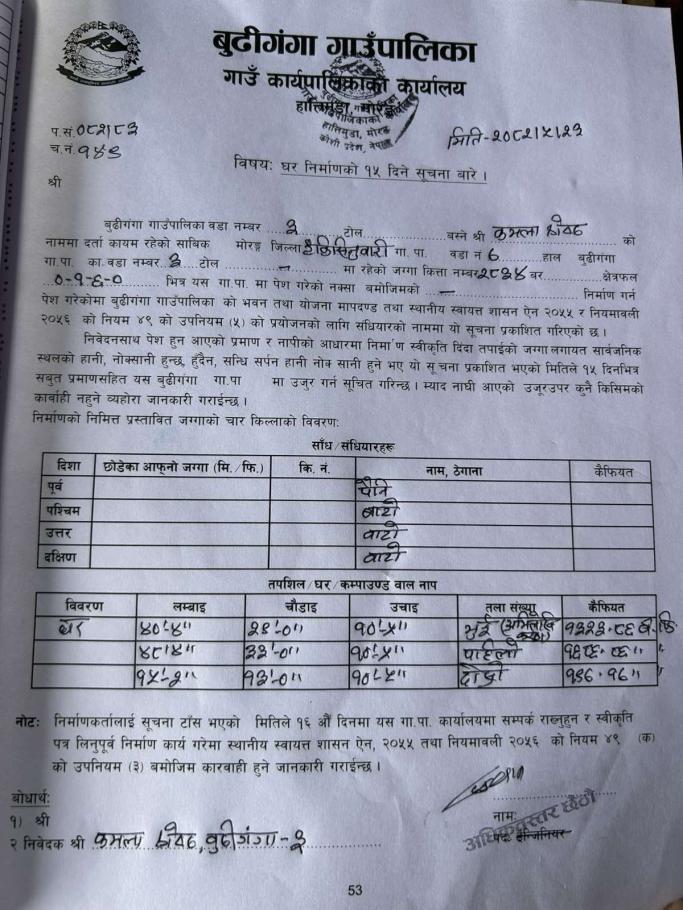 बुढीगंगा गाउँपालिका
गाउँ कार्यपालिकाको कार्यालय
हात्तिमुडा, मोरङ
हात्तिमुडा, मोरङ
कोशी प्रदेश, नेपाल
प.सं.०८२।८३
च.नं.१४९
मिति-२०८२।५।२३
विषय: घर निर्माणको १५ दिने सूचना बारे ।
श्री
बुढीगंगा गाउँपालिका वडा नम्बर ..३.. टोल............ बस्ने श्री कमला ............ को
नाममा दर्ता कायम रहेको साबिक मोरङ्ग जिल्ला गा. पा. वडा नं ६ हाल बुढीगंगा
गा.पा. का.वडा नम्बर.३ टोल ......–...... मा रहेको जग्गा कित्ता नम्बर२८३४ बर........ क्षेत्रफल
०-१-६-० भित्र यस गा.पा. मा पेश गरेको नक्सा बमोजिमको ......–...... निर्माण गर्न
पेश गरेकोमा बुढीगंगा गाउँपालिका को भवन तथा योजना मापदण्ड तथा स्थानीय स्वायत्त शासन ऐन २०५५ र नियमावली
२०५६ को नियम ४९ को उपनियम (५) को प्रयोजनको लागि संधियारको नाममा यो सूचना प्रकाशित गरिएको छ ।
निवेदनसाथ पेश हुन आएको प्रमाण र नापीको आधारमा निर्माण स्वीकृति दिंदा तपाईको जग्गा लगायत सार्वजनिक
स्थलको हानी, नोक्सानी हुन्छ, हुँदैन, सन्धि सर्पन हानी नोक्सानी हुने भए यो सूचना प्रकाशित भएको मितिले १५ दिनभित्र
सबुत प्रमाणसहित यस बुढीगंगा गा.पा मा उजुर गर्न सूचित गरिन्छ । म्याद नाघी आएको उजूरउपर कुनै किसिमको
कार्बाही नहुने व्यहोरा जानकारी गराईन्छ ।
निर्माणको निमित्त प्रस्तावित जग्गाको चार किल्लाको विवरण:
साँध/संधियारहरू
दिशा छोडेका आफ्नो जग्गा (मि./फि.) कि. नं. नाम, ठेगाना कैफियत
पूर्व पैनि
पश्चिम बाटो
उत्तर बाटो
दक्षिण बाटो
तपशिल/घर/कम्पाउण्ड वाल नाप
विवरण लम्बाइ चौडाइ उचाइ तला संख्या कैफियत
घर ४०'-४" १०'-५" भुई
४८'४" ३३'-०" १०'-५" पाहिलो
१५'-२" १३'-०" १०'-५" दोस्रो
नोट: निर्माणकर्तालाई सूचना टाँस भएको मितिले १६ औं दिनमा यस गा.पा. कार्यालयमा सम्पर्क राख्नुहुन र स्वीकृति
पत्र लिनुपूर्व निर्माण कार्य गरेमा स्थानीय स्वायत्त शासन ऐन, २०५५ तथा नियमावली २०५६ को नियम ४९ (क)
को उपनियम (३) बमोजिम कारवाही हुने जानकारी गराईन्छ ।
बोधार्थ:
१) श्री
नाम:
अधिकृतस्तर छैठौं
पद: ईन्जिनियर
२ निवेदक श्री कमला बुढीगंगा-३
53